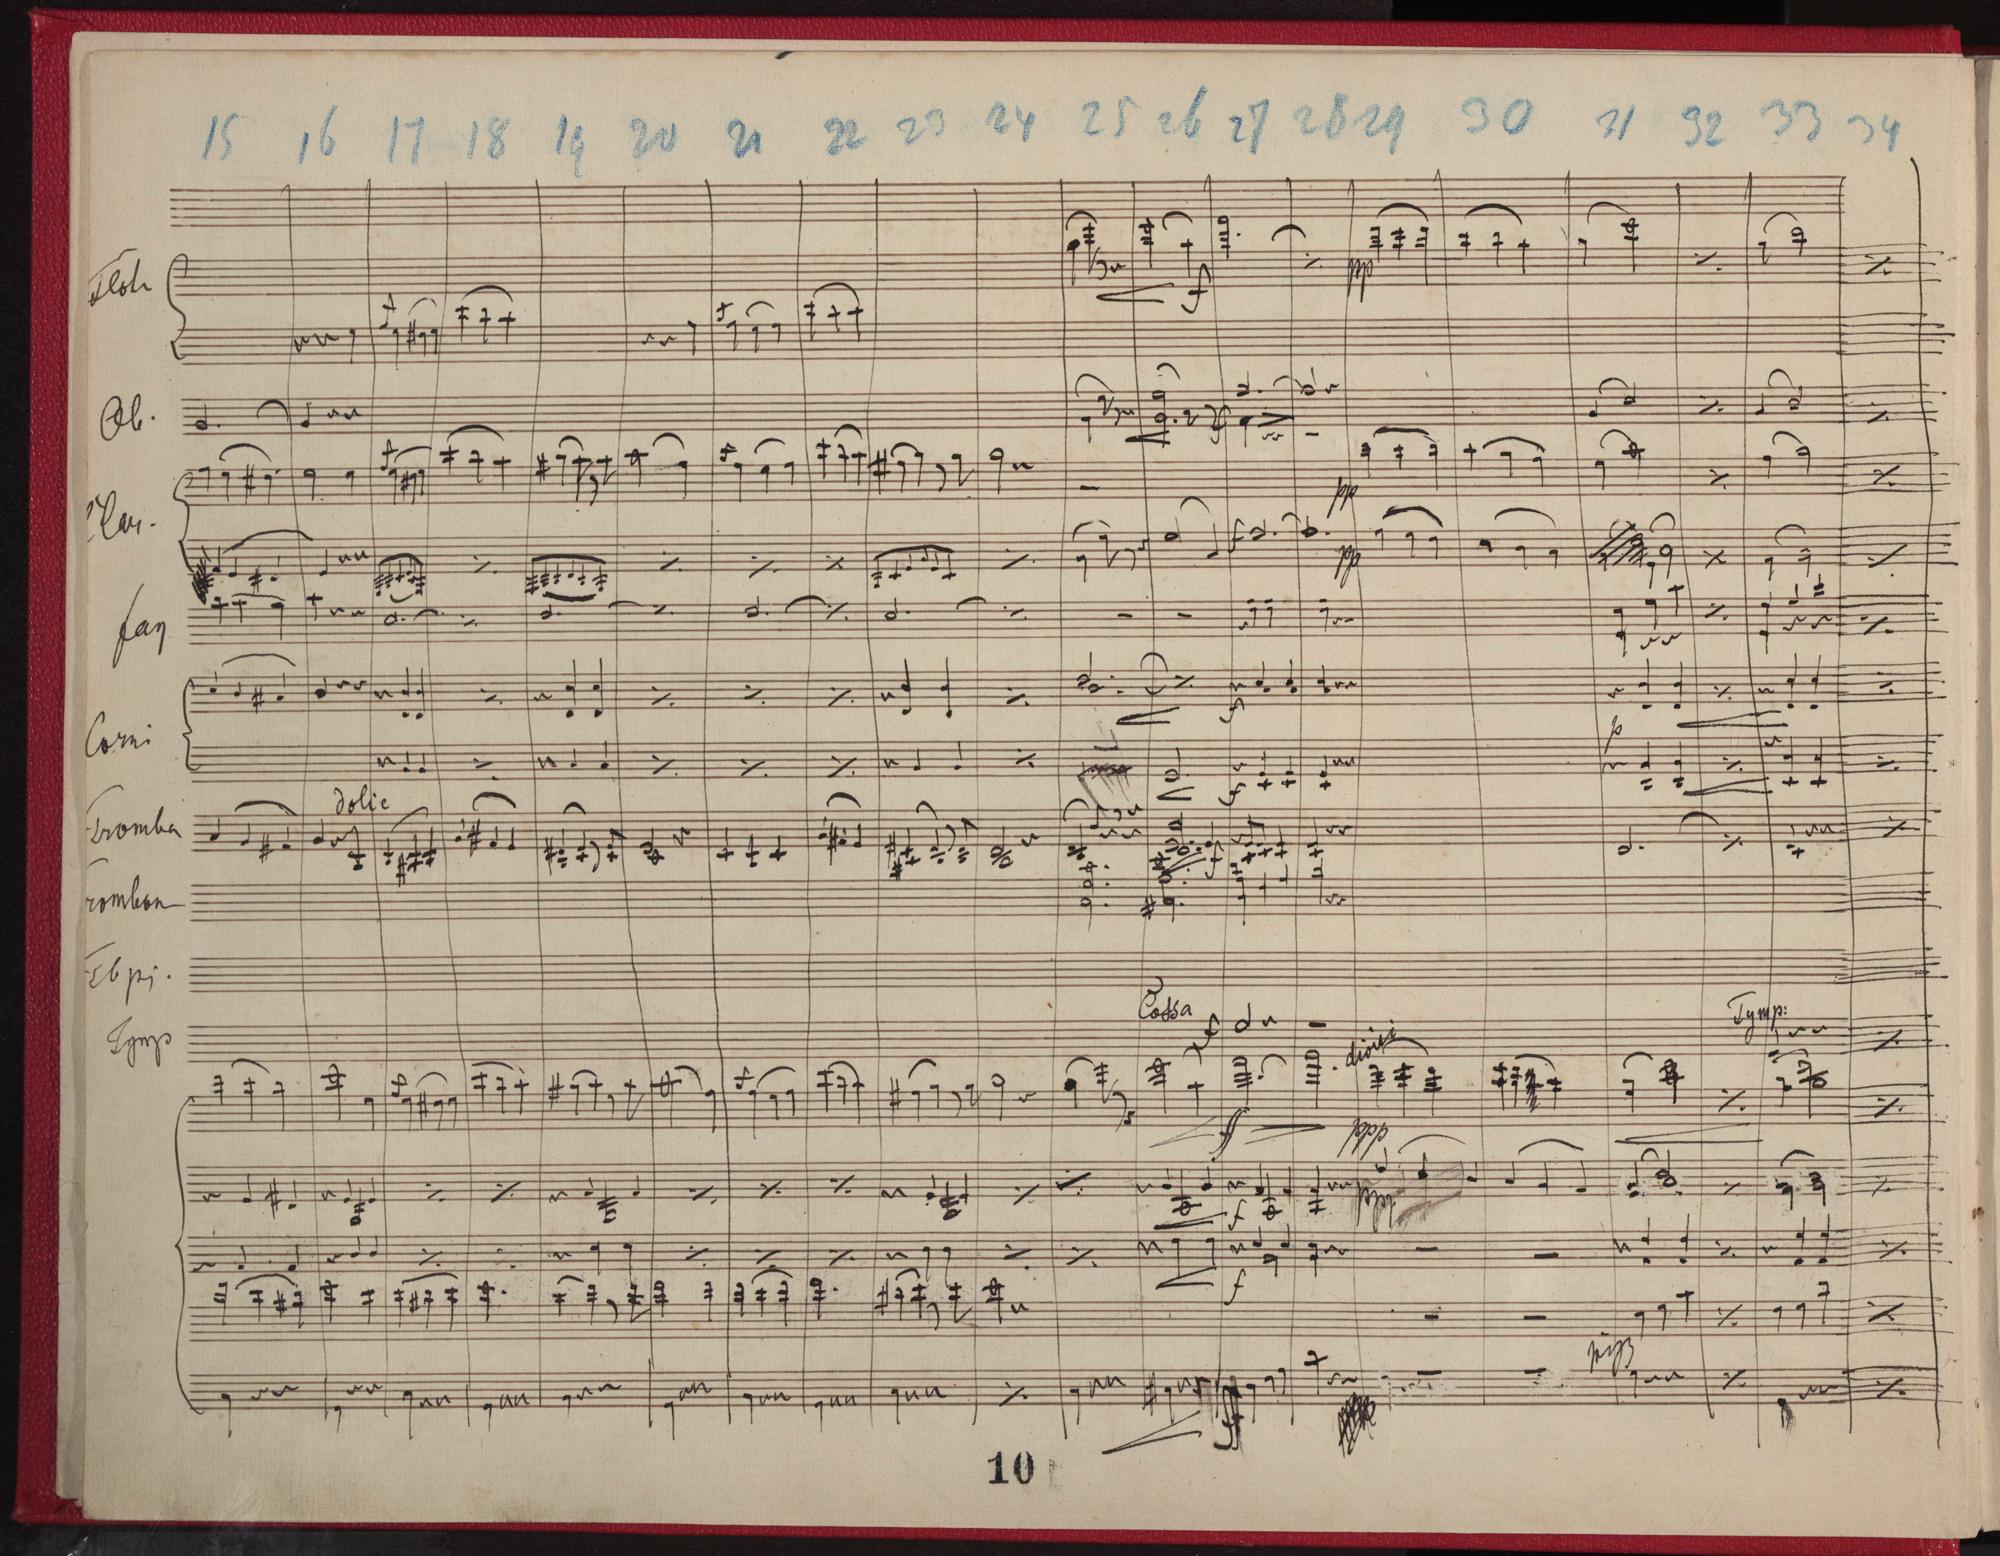 15 16 17 18 19 20 21 22 23 24 25 26 27 28 29 30 31 32 33 34
f
pp
Ob.
f
pp
Clar.
f
pp
fag
f
p
Corni
f
dolic
Tromba
f
romban
Cassa
Tymp:
f
Tymp
divisi
ff
ppp
f
f
ff
10